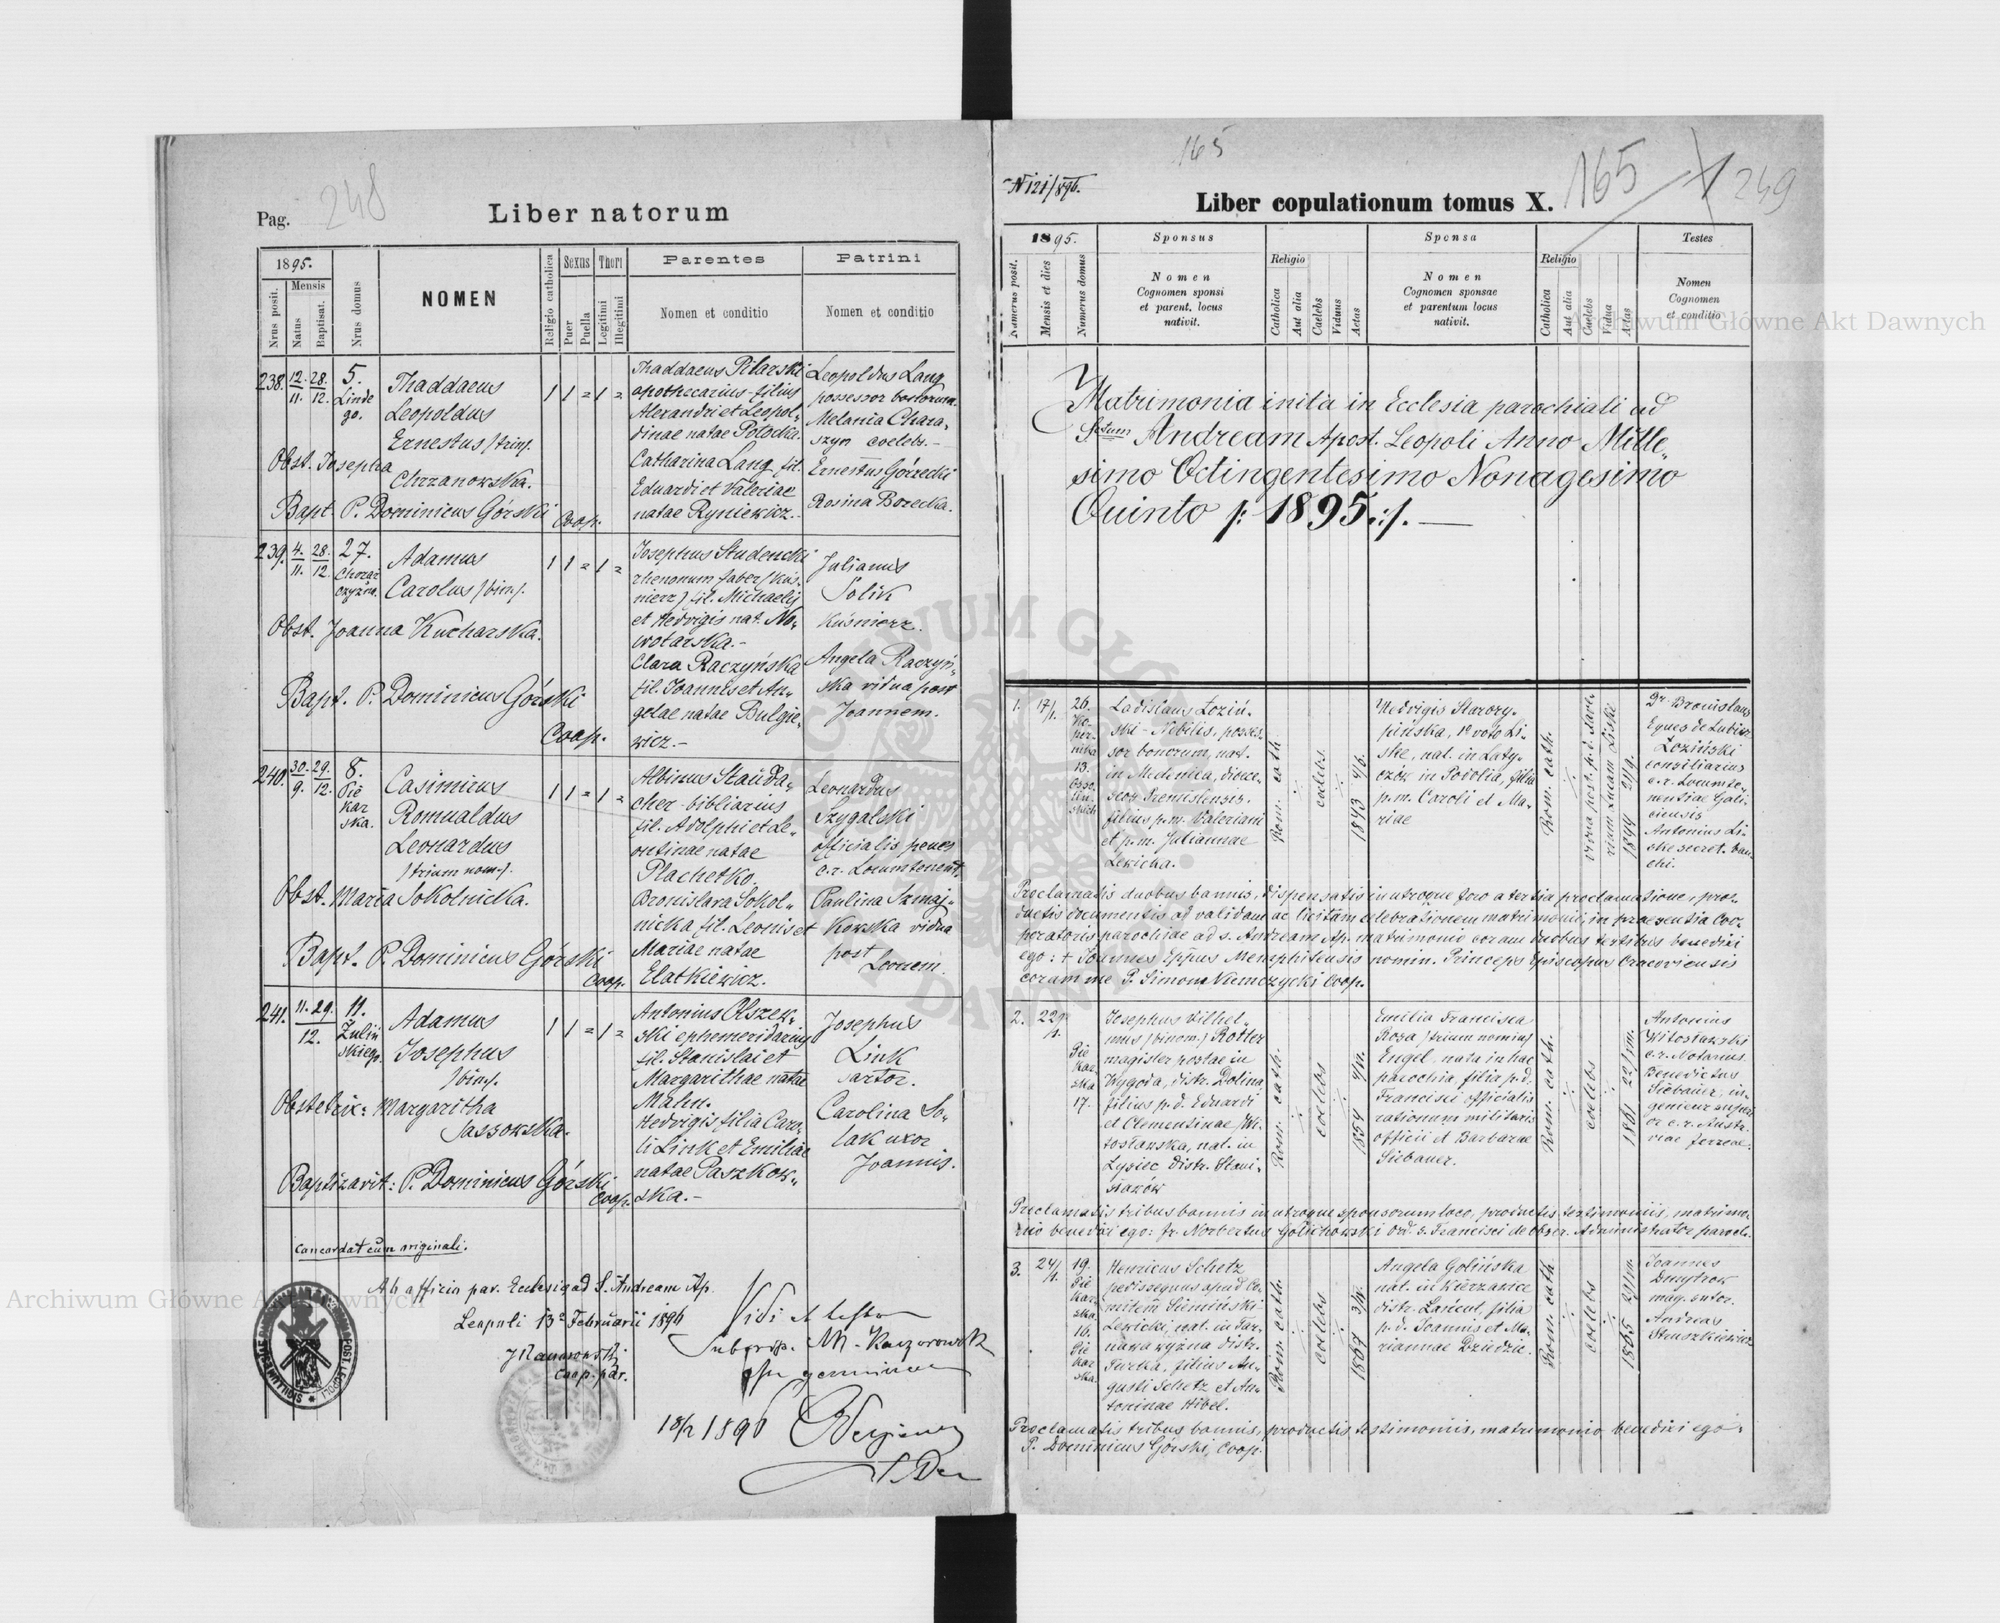 Pag. 248
Liber natorum
1895.
Nrus posit.
Mensis
Natus
Baptisat.
Nrus domus
NOMEN
Religio catholica
Sexus
Puer
Puella
Thori
Legitimi
Illegitimi
Parentes
Nomen et conditio
Patrini
Nomen et conditio
238. 12/11. 28./12. 5. Linde go.
Thaddaeus
Leopoldus
Ernestus /trin/.
Obst. Josepha
Chrzanowska.
Bapt. P. Dominicus Górski Coop.
Thaddaeus Pilarski
apothecarius filius
Alexandri et Leopol-
dinae natae Potocka.
Catharina Lang fil.
Eduardi et Valeriae
natae Ryniewicz.-
Leopoldus Lang
possessor
Melania Chara-
szyn coelebs.-
Ernestus Górzecki
Rosina Borecka.
239. 4./11. 28./12. 27.
Adamus
Carolus /bin/.
Obst. Joanna Kucharska.
Bapt. P. Dominicus Górski
Coop.
Josephus Studencki
rhenonum faber /kuś-
nierz/ fil. Michaelis
et Hedvigis nat. No-
wotarska.-
Clara Raczyńska
fil. Joannis et An-
gelae natae Bulgie-
wicz.-
Julianus
Solik
Kuśnierz.
Angela Raczyń-
ska vidua post
Joannem.
240. 30./9. 29./12. 8. Pie kar ska.
Casimirus
Romualdus
Leonardus
/trium nom/.
Obst. Maria Sokolnicka.
Bapt. P. Dominicus Górski
Coop.
Albinus Stauda-
cher bibliarius
fil. Adolphi et Le-
ontinae natae
Plachetko.
Bronislava Sokol-
nicka fil. Leonis et
Mariae natae
Elatkiewicz.
Leonardus
Szygalski
officialis penes
c.r. Locumtenent.
Paulina Szmaj-
kowska vidua
post
Leonem.
241. 11. 29./12. 11. Żuliń skiego.
Adamus
Josephus
/bin/.
Obstetrix: Margaritha
Sassowska.
Baptizavit: P. Dominicus Górski
Coop.
Antonius Olszew-
ski ephemeridarius
fil. Stanislai et
Margarithae natae
Mahn.
Hedvigis filia Caro-
li Link et Emiliae
natae Paszkow-
ska.-
Josephus
Link
sartor.
Carolina So-
lak uxor
Joannis.
Concordat cum originali.
Ab officio par. Ecclesiae ad S. Andream Ap.
Leopoli 13° Februarii 1896
Coop. par.
18/2 1896
165
N 121/896.
Liber copulationum tomus X.
165
249
1895.
Numerus posit.
Mensis et dies
Numerus domus
Sponsus
Nomen
Cognomen sponsi
et parent. locus
nativit.
Religio
Catholica
Aut alia
Caelebs
Viduus
Aetas
Sponsa
Nomen
Cognomen sponsae
et parentum locus
nativit.
Religio
Catholica
Aut alia
Caelebs
Vidua
Aetas
Testes
Nomen
Cognomen
et conditio
Matrimonia inita in Ecclesia parochiali ad
Sctum Andream Apost. Leopoli Anno Mille-
simo Octingentesimo Nonagesimo
Quinto /: 1895 :/. —
1. 17/1. 26. Ko- per- nika 13. Osso- liń- skich
Ladislaus Łoziń-
ski - Nobilis, posses-
sor bonorum, nat.
in Medenica, dioece-
seos Premisliensis,
filius p.m. Valeriani
et p.m. Juliannae
Lewicka.
Rom. cath.
caelebs
1843 4/6.
Hedvigis Starzy-
pińska, 1° voto Li-
ske, nat. in Laty-
czów in Podolia, filia
p.m. Caroli et Ma-
riae
Rom. cath.
1844 21/9.
Dr. Bronislaus
Eques de Lubicz
Łoziński
consiliarius
c.r. Locumte-
nentiae Gali-
ciensis
Antonius Li-
ske secret. ban-
chi.
Proclamatis duobus bannis, dispensatis in utroque foro a tertia proclamatione, pro-
ductis documentis ad validam ac licitam celebrationem matrimonii, in praesentia Coo-
peratoris parochiae ad s. Andream Ap. matrimonio coram duobus testibus benedixi
ego: + Joannes Eppus Memphitensis nomin. Princeps Episcopus Cracoviensis
coram me P. Simone Niemczycki Coop.
2. 22/1. Pie kar ska 17.
Josephus Vilhel-
mus /binom/ Rotter
magister postae in
Wygoda, distr. Dolina,
filius p.d. Eduardi
et Clementinae Wi-
tosławska, nat. in
Łysiec distr. Stani-
sławów
Rom. cath.
caelebs
1854
Emilia Francisca
Rosa /trium nomin/
Engel, nata in hac
parochia, filia p.d.
Francisci officialis
rationum militaris
officii et Barbarae
Siebauer.
Rom. cath.
caelebs
1861
Antonius
Witosławski
c.r. Notarius
Benedictus
Siebauer, in-
genieur super
or c.r. Austr-
riae ferreae.
Proclamatis tribus bannis in utroque sponsorum loco, productis testimoniis, matrimo-
nio benedixi ego: fr. Norbertus Golichowski Ord. S. Francisci de obser. Administrator paroch.
3. 24/1. 19. Pie kar ska. 16. Pie kar ska.
Henricus Schetz
pedissequus apud Co-
mitem Siemiński
Lewicki, nat. in Jar-
nawa wyżna distr.
Turka, filius Au-
gusti Schetz et An-
toninae Hibel.
Rom. cath.
caelebs
1867
Angela Golińska
nat. in Kierzanice
distr. Łańcut, filia
p.d. Joannis et Ma-
riannae Dziedzic.
Rom. cath.
caelebs
1865
Joannes
Dmytrow
mag. sutor.
Andreas
Struszkiewicz
Proclamatis tribus bannis, productis testimoniis, matrimonio benedixi ego:
P. Dominicus Górski, Coop.
Archiwum Główne Akt Dawnych
Archiwum Główne Akt Dawnych